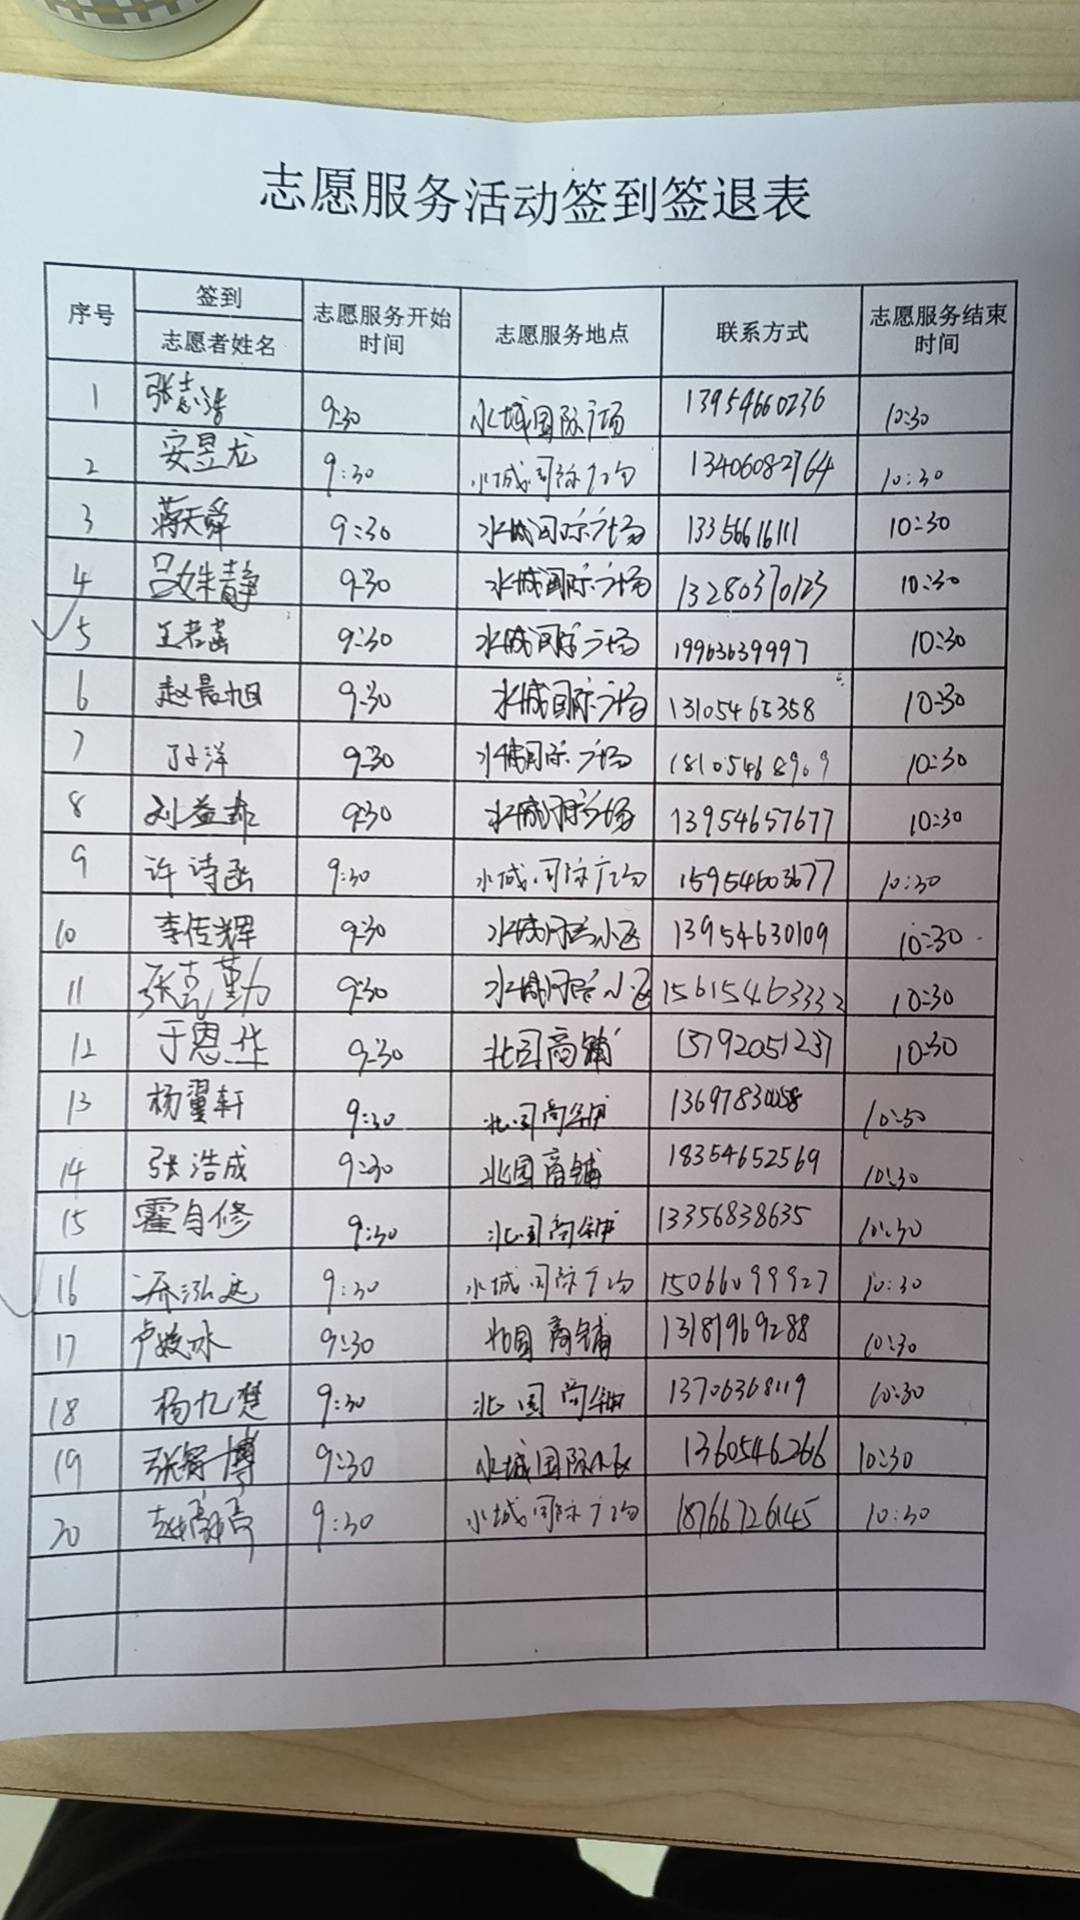 志愿服务活动签到签退表
序号 签到 志愿者姓名 志愿服务开始时间 志愿服务地点 联系方式 志愿服务结束时间
1 张志浩 9:30 水城国际广场 13954660236 10:30
2 安昱龙 9:30 水城国际广场 13406082764 10:30
3 蒋天舜 9:30 水城国际广场 13356616111 10:30
4 吕姝静 9:30 水城国际广场 13280370123 10:30
5 王若菡 9:30 水城国际广场 19963639997 10:30
6 赵晨旭 9:30 水城国际广场 10:30
7 孙洋 9:30 水城国际广场 18105468909 10:30
8 刘益 9:30 水城国际广场 13954657677 10:30
9 许诗函 9:30 水城国际广场 15954603677 10:30
10 李传辉 9:30 水城国际小区 13954630109 10:30
11 张克勤 9:30 水城国际小区 15615463332 10:30
12 于恩华 9:30 北国商铺 15792051237 10:30
13 杨翼轩 9:30 北国商铺 10:30
14 张浩成 9:30 北国商铺 18354652569 10:30
15 霍自修 9:30 北国商铺 13356838635 10:30
16 泓远 9:30 水城国际广场 15066099927 10:30
17 卢 冰 9:30 北国商铺 13181969288 10:30
18 杨九楚 9:30 北国商铺 13706368119 10:30
19 张 博 9:30 水城国际小区 13605546266 10:30
20 9:30 水城国际广场 18766726145 10:30